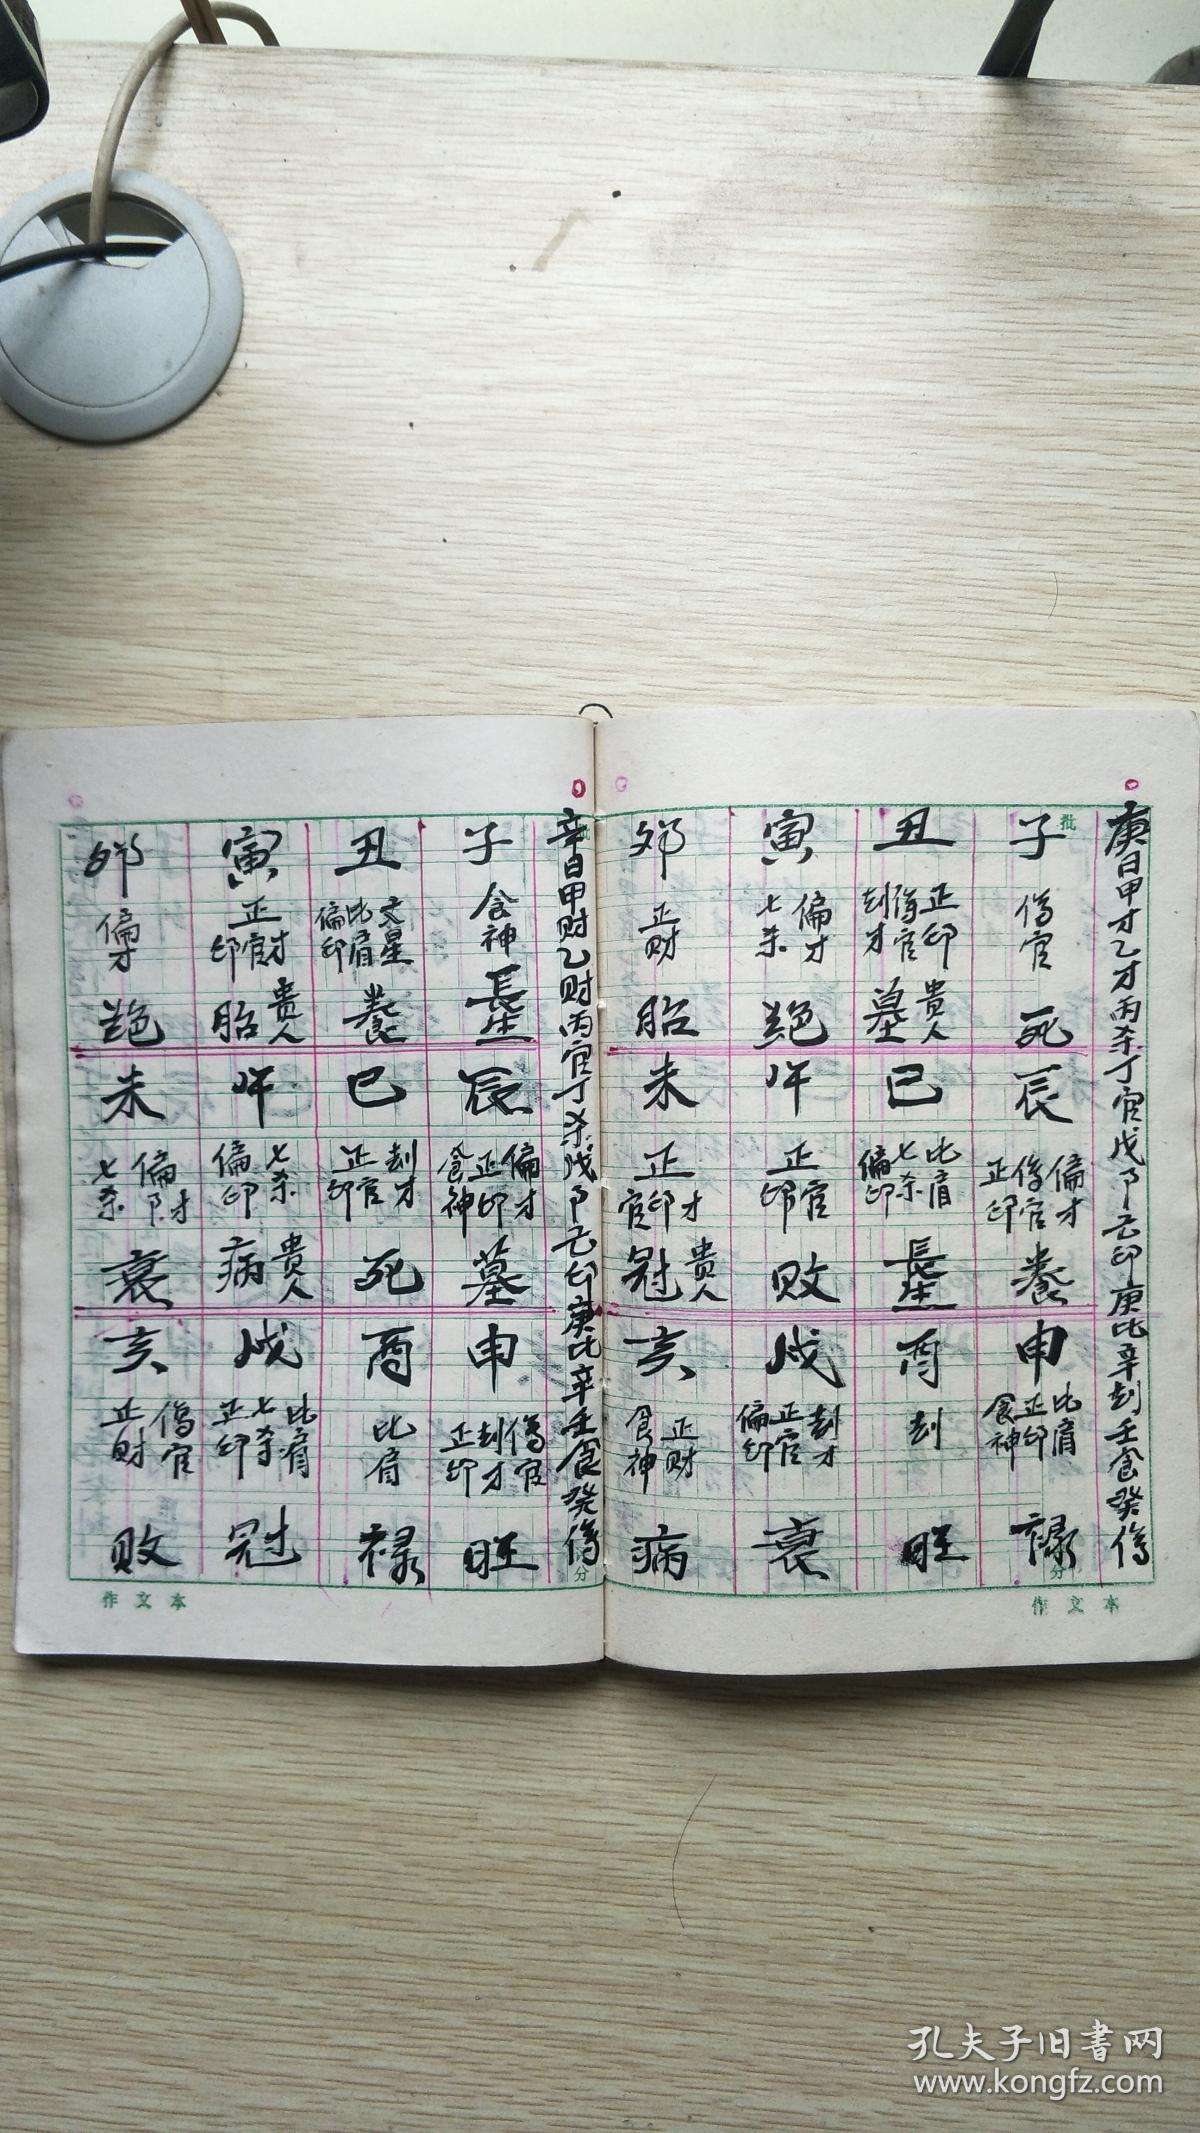 庚日甲才乙才丙杀丁官戊卩己印庚比辛刦壬食癸伤
批
子
伤官
死
丑
正印
伤官
刦才
墓
贵人
寅
偏才
七杀
絕
卯
正财
胎
辰
偏才
伤官
正印
養
巳
比肩
七杀
偏印
長生
午
正官
正印
败
未
正印
官
才
冠
贵人
申
比肩
正印
食神
禄
酉
刦
旺
戌
刦才
正官
偏印
衰
亥
正财
食神
病
分
作文本
辛日甲财乙财丙官丁杀戊卩己印庚比辛壬食癸伤
子
食神
長生
丑
文星
比肩
偏印
養
寅
才
正官
印
胎
贵人
卯
偏才
絕
辰
偏才
正印
食神
墓
巳
刦才
正官
正印
死
午
七杀
偏印
病
贵人
未
偏才
卩
七杀
衰
申
伤官
刦才
正印
旺
酉
比肩
禄
戌
比肩
七杀
正印
冠
亥
伤官
正财
败
分
作文本
孔夫子旧书网
www.kongfz.com